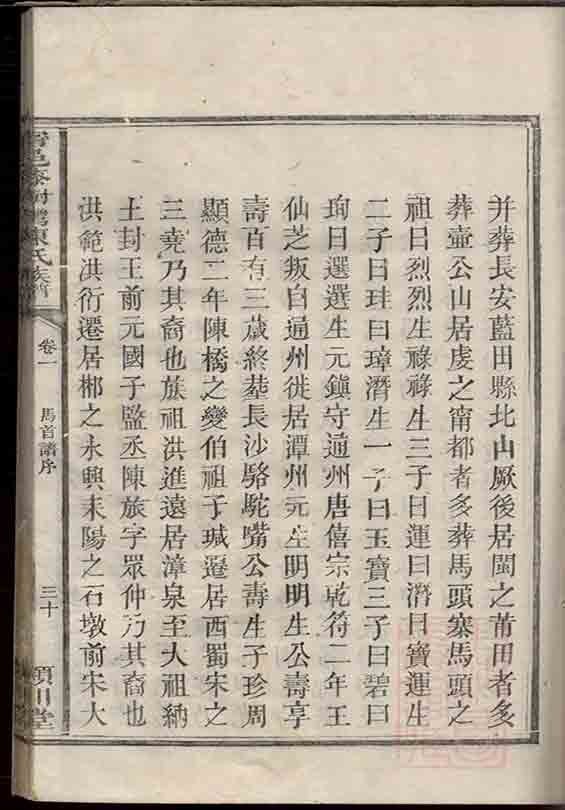 并葬長安藍田縣北山厥後居閩之莆田者多
葬壺公山居虔之甯都者多葬馬頭寨馬頭之
祖曰烈烈生祿祿生三子曰運曰濳曰寶運生
二子曰珪曰璋濳生一子曰玉寶三子曰碧曰
珣曰選選生元鎮守通州唐僖宗乾符二年王
仙芝叛自通州徙居潭州元生明明生公壽享
壽百有三歲終塟長沙駱駝嘴公壽生子珍周
顯德二年陳橋之變伯祖子瑊遷居西蜀宋之
三堯乃其裔也族祖洪進遠居漳泉至大祖納
土封王前元國子監丞陳旅字眾仲乃其裔也
洪範洪衍遷居郴之永興耒陽之石墩前宋大
陳氏族譜
卷一
馬首譜序
三十
潁川堂